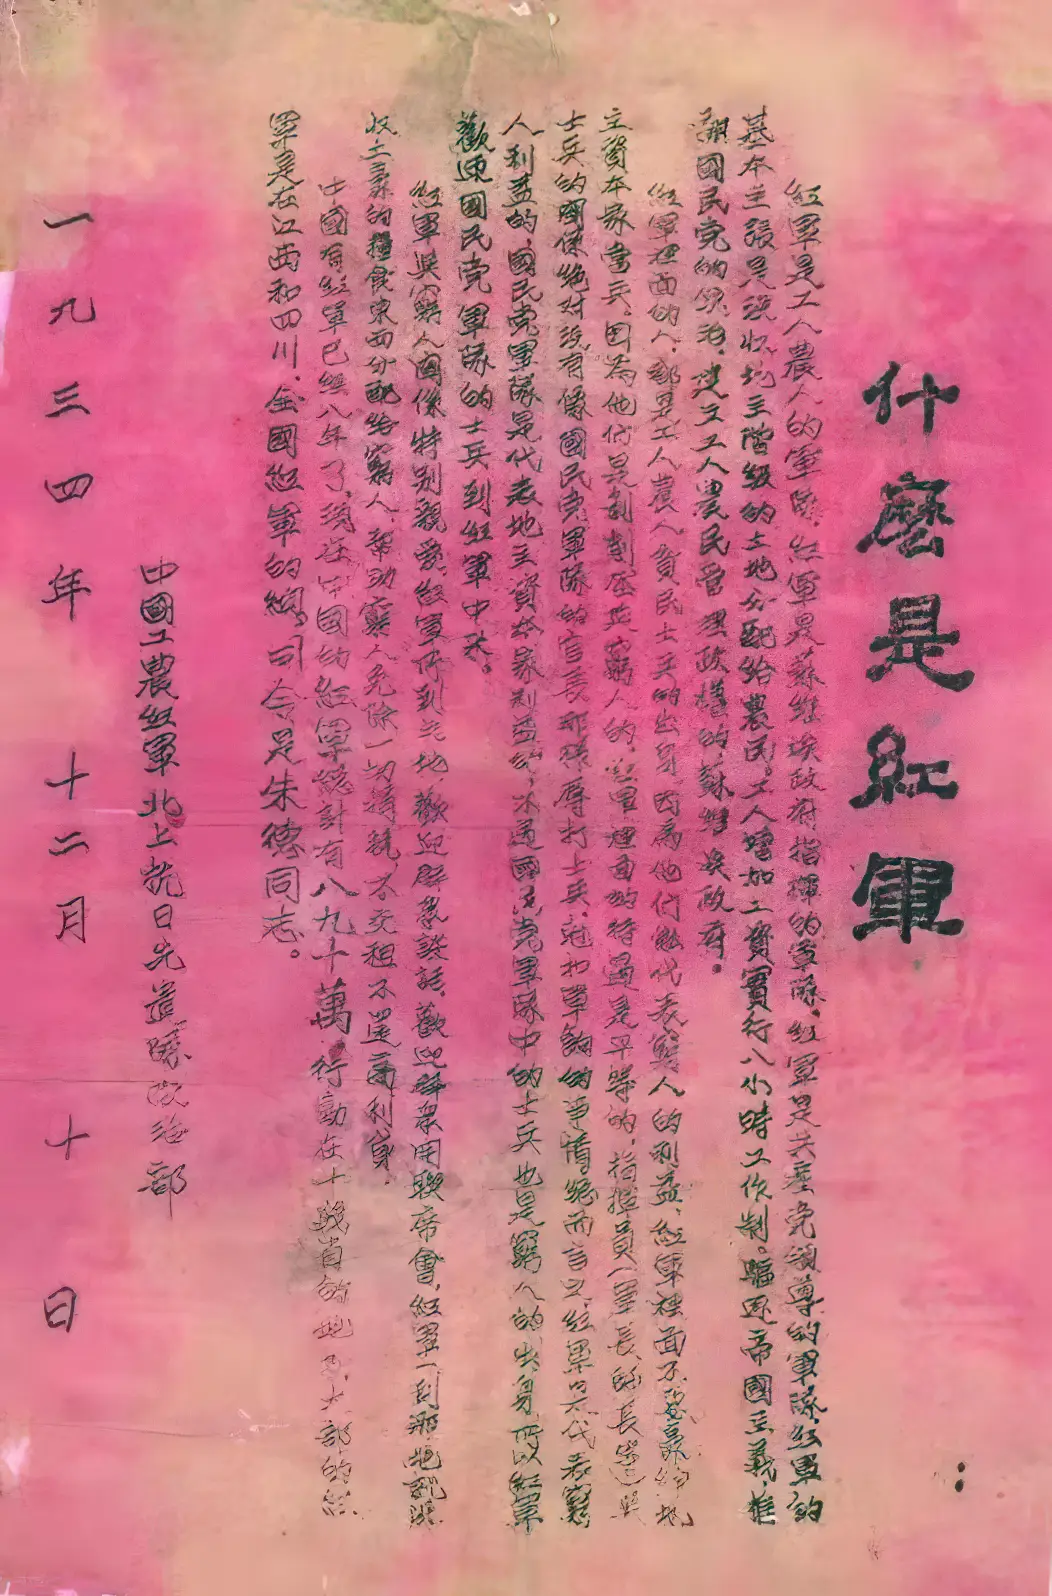 什麽是紅軍
：
紅軍是工人農人的軍隊，紅軍是蘇維埃政府指揮的軍隊，紅軍是共產党領導的軍隊，紅軍的
基本主張是没收地主階級的土地分配給農民。工人增加工資實行八小時工作制。驅逐帝國主義，推
翻國民党的統治，建立工人農民管理政權的，蘇維埃政府。
紅軍裡面的人，都是工人農人貧民士兵的出身，因為他们能代表窮人的利益，紅軍裡面不要豪紳地
主資本家當兵，因為他们是剝削压迫窮人的，紅軍裡面的待遇是平等的，指揮員（軍長師長等）與
士兵的關係絶对没有像國民党軍隊的官長那樣辱打士兵，尅扣軍餉的事情。總而言之，紅軍是代表窮
人利益的，國民党軍隊是代表地主資本家利益的，不過國民党軍隊中的士兵也是窮人的出身，所以紅軍
歡迎國民党軍隊的士兵到紅軍中來。
紅軍與窮人關係特别親愛，紅軍所到之地，歡迎羣眾談話，歡迎羣眾開聯席會，紅軍一到那地就没
收土豪的糧食東西分配给窮人，幫助窮人免除一切捐税，不交租不還高利貸，
中國有紅軍已經八年了，現在中國的紅軍總計有八九十萬，行動在十幾省的地區，大部的紅
軍是在江西和四川，全國紅軍的總司令是朱德同志。
中國工農紅軍北上抗日先遣隊政治部
一九三四年十二月十日